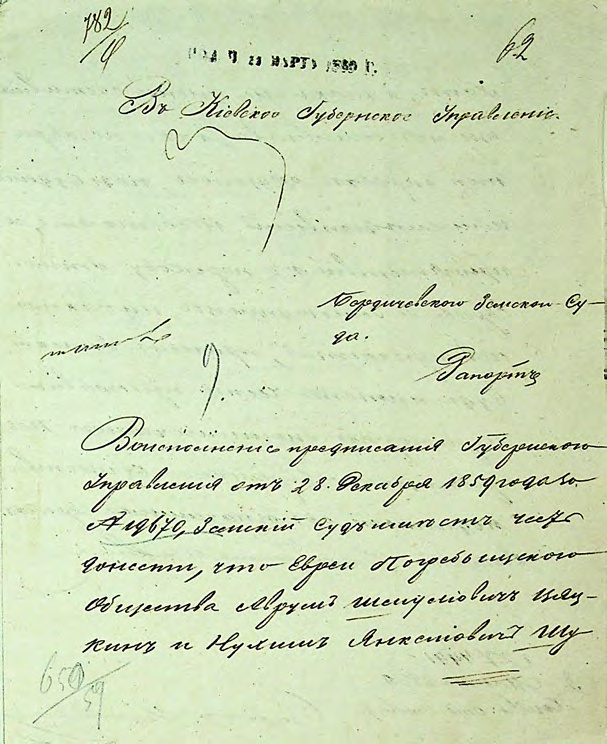 782/4
62
МАРТА 1860 Г.
Въ Кіевское Губернское Правленіе.
Бердичевского Земского Су-
да.
9.
Рапортъ
Воисполненіе предписанія Губернского
Правленія отъ 28. Декабря 1859 года за
№ 19670, Земскій Судъ имѣетъ честь
донести, что Евреи Погребыщского
Общества Аврумъ Шмулiовичъ Цац-
кинъ и Нухимъ Янкелiовичъ Шу
659/59